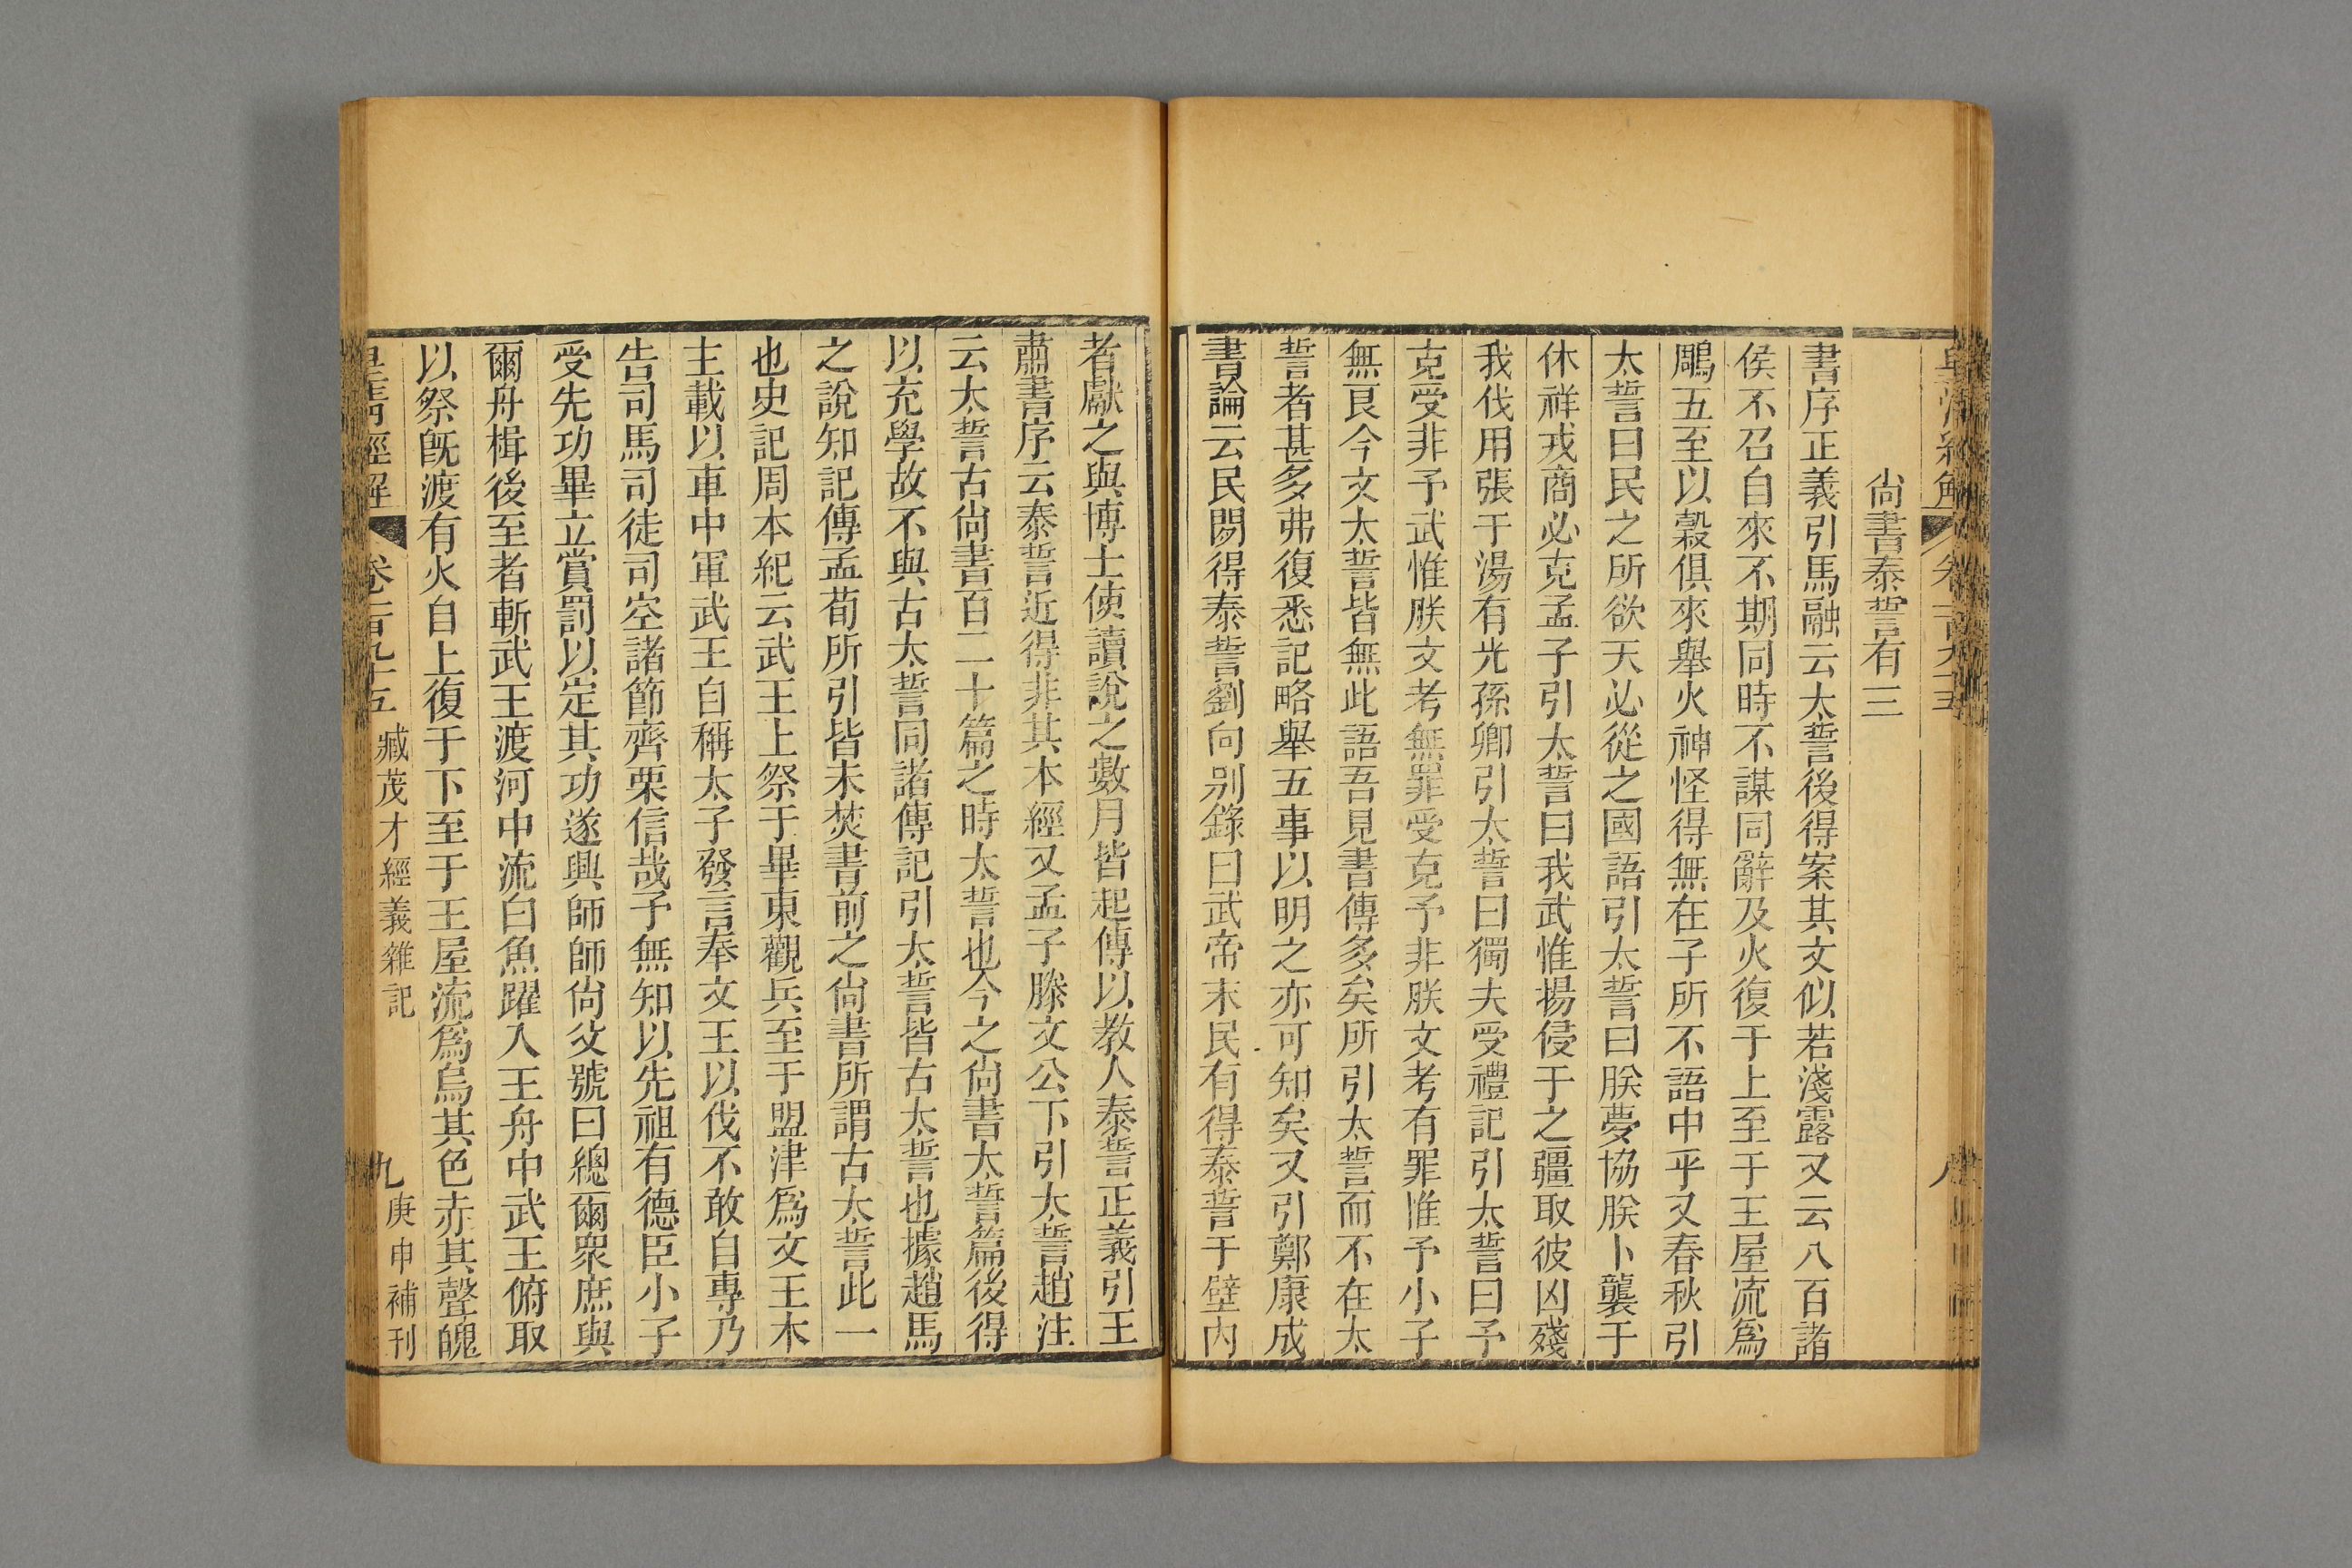 皇清經解
卷一百九十五
八
尙書泰誓有三
書序正義引馬融云太誓後得案其文似若淺露又云八百諸
侯不召自來不期同時不謀同辭及火復于上至于王屋流爲
鵰五至以穀俱來舉火神怪得無在子所不語中乎又春秋引
太誓曰民之所欲天必從之國語引太誓曰朕夢協朕卜襲于
休祥戎商必克孟子引太誓曰我武惟揚侵于之疆取彼凶殘
我伐用張于湯有光孫卿引太誓曰獨夫受禮記引太誓曰予
克受非予武惟朕文考無罪受克予非朕文考有罪惟予小子
無良今文太誓皆無此語吾見書傳多矣所引太誓而不在太
誓者甚多弗復悉記略舉五事以明之亦可知矣又引鄭康成
書論云民閒得泰誓劉向別錄曰武帝末民有得泰誓于壁內
者獻之與博士使讀說之數月皆起傳以教人泰誓正義引王
肅書序云泰誓近得非其本經又孟子滕文公下引太誓趙注
云太誓古尙書百二十篇之時太誓也今之尙書太誓篇後得
以充學故不與古太誓同諸傳記引太誓皆古太誓也據趙馬
之說知記傳孟荀所引皆未焚書前之尙書所謂古太誓此一
也史記周本紀云武王上祭于畢東觀兵至于盟津爲文王木
主載以車中軍武王自稱太子發言奉文王以伐不敢自專乃
告司馬司徒司空諸節齊栗信哉予無知以先祖有德臣小子
受先功畢立賞罰以定其功遂興師師尙父號曰總爾眾庶與
爾舟楫後至者斬武王渡河中流白魚躍入王舟中武王俯取
以祭旣渡有火自上復于下至于王屋流爲烏其色赤其聲魄
皇清經解
卷一百九十五
臧茂才經義雜記
九
庚申補刊